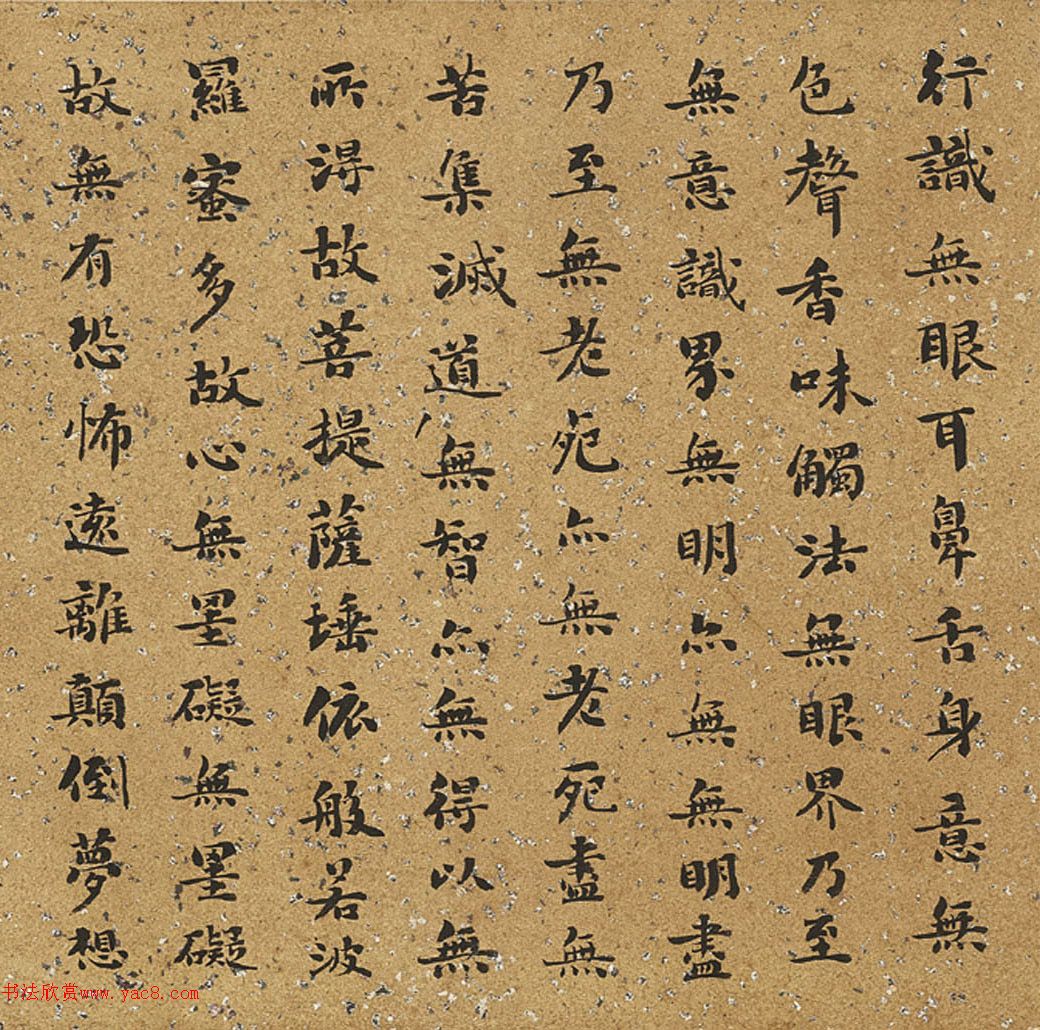 行識無眼耳鼻舌身意無
色聲香味觸法無眼界乃至
無意識界無明亦無無明盡
乃至無老死亦無老死盡無
苦集滅道無智亦無得以無
所得故菩提薩埵依般若波
羅蜜多故心無罣礙無罣礙
故無有恐怖遠離顛倒夢想
书法欣赏www.yac8.com